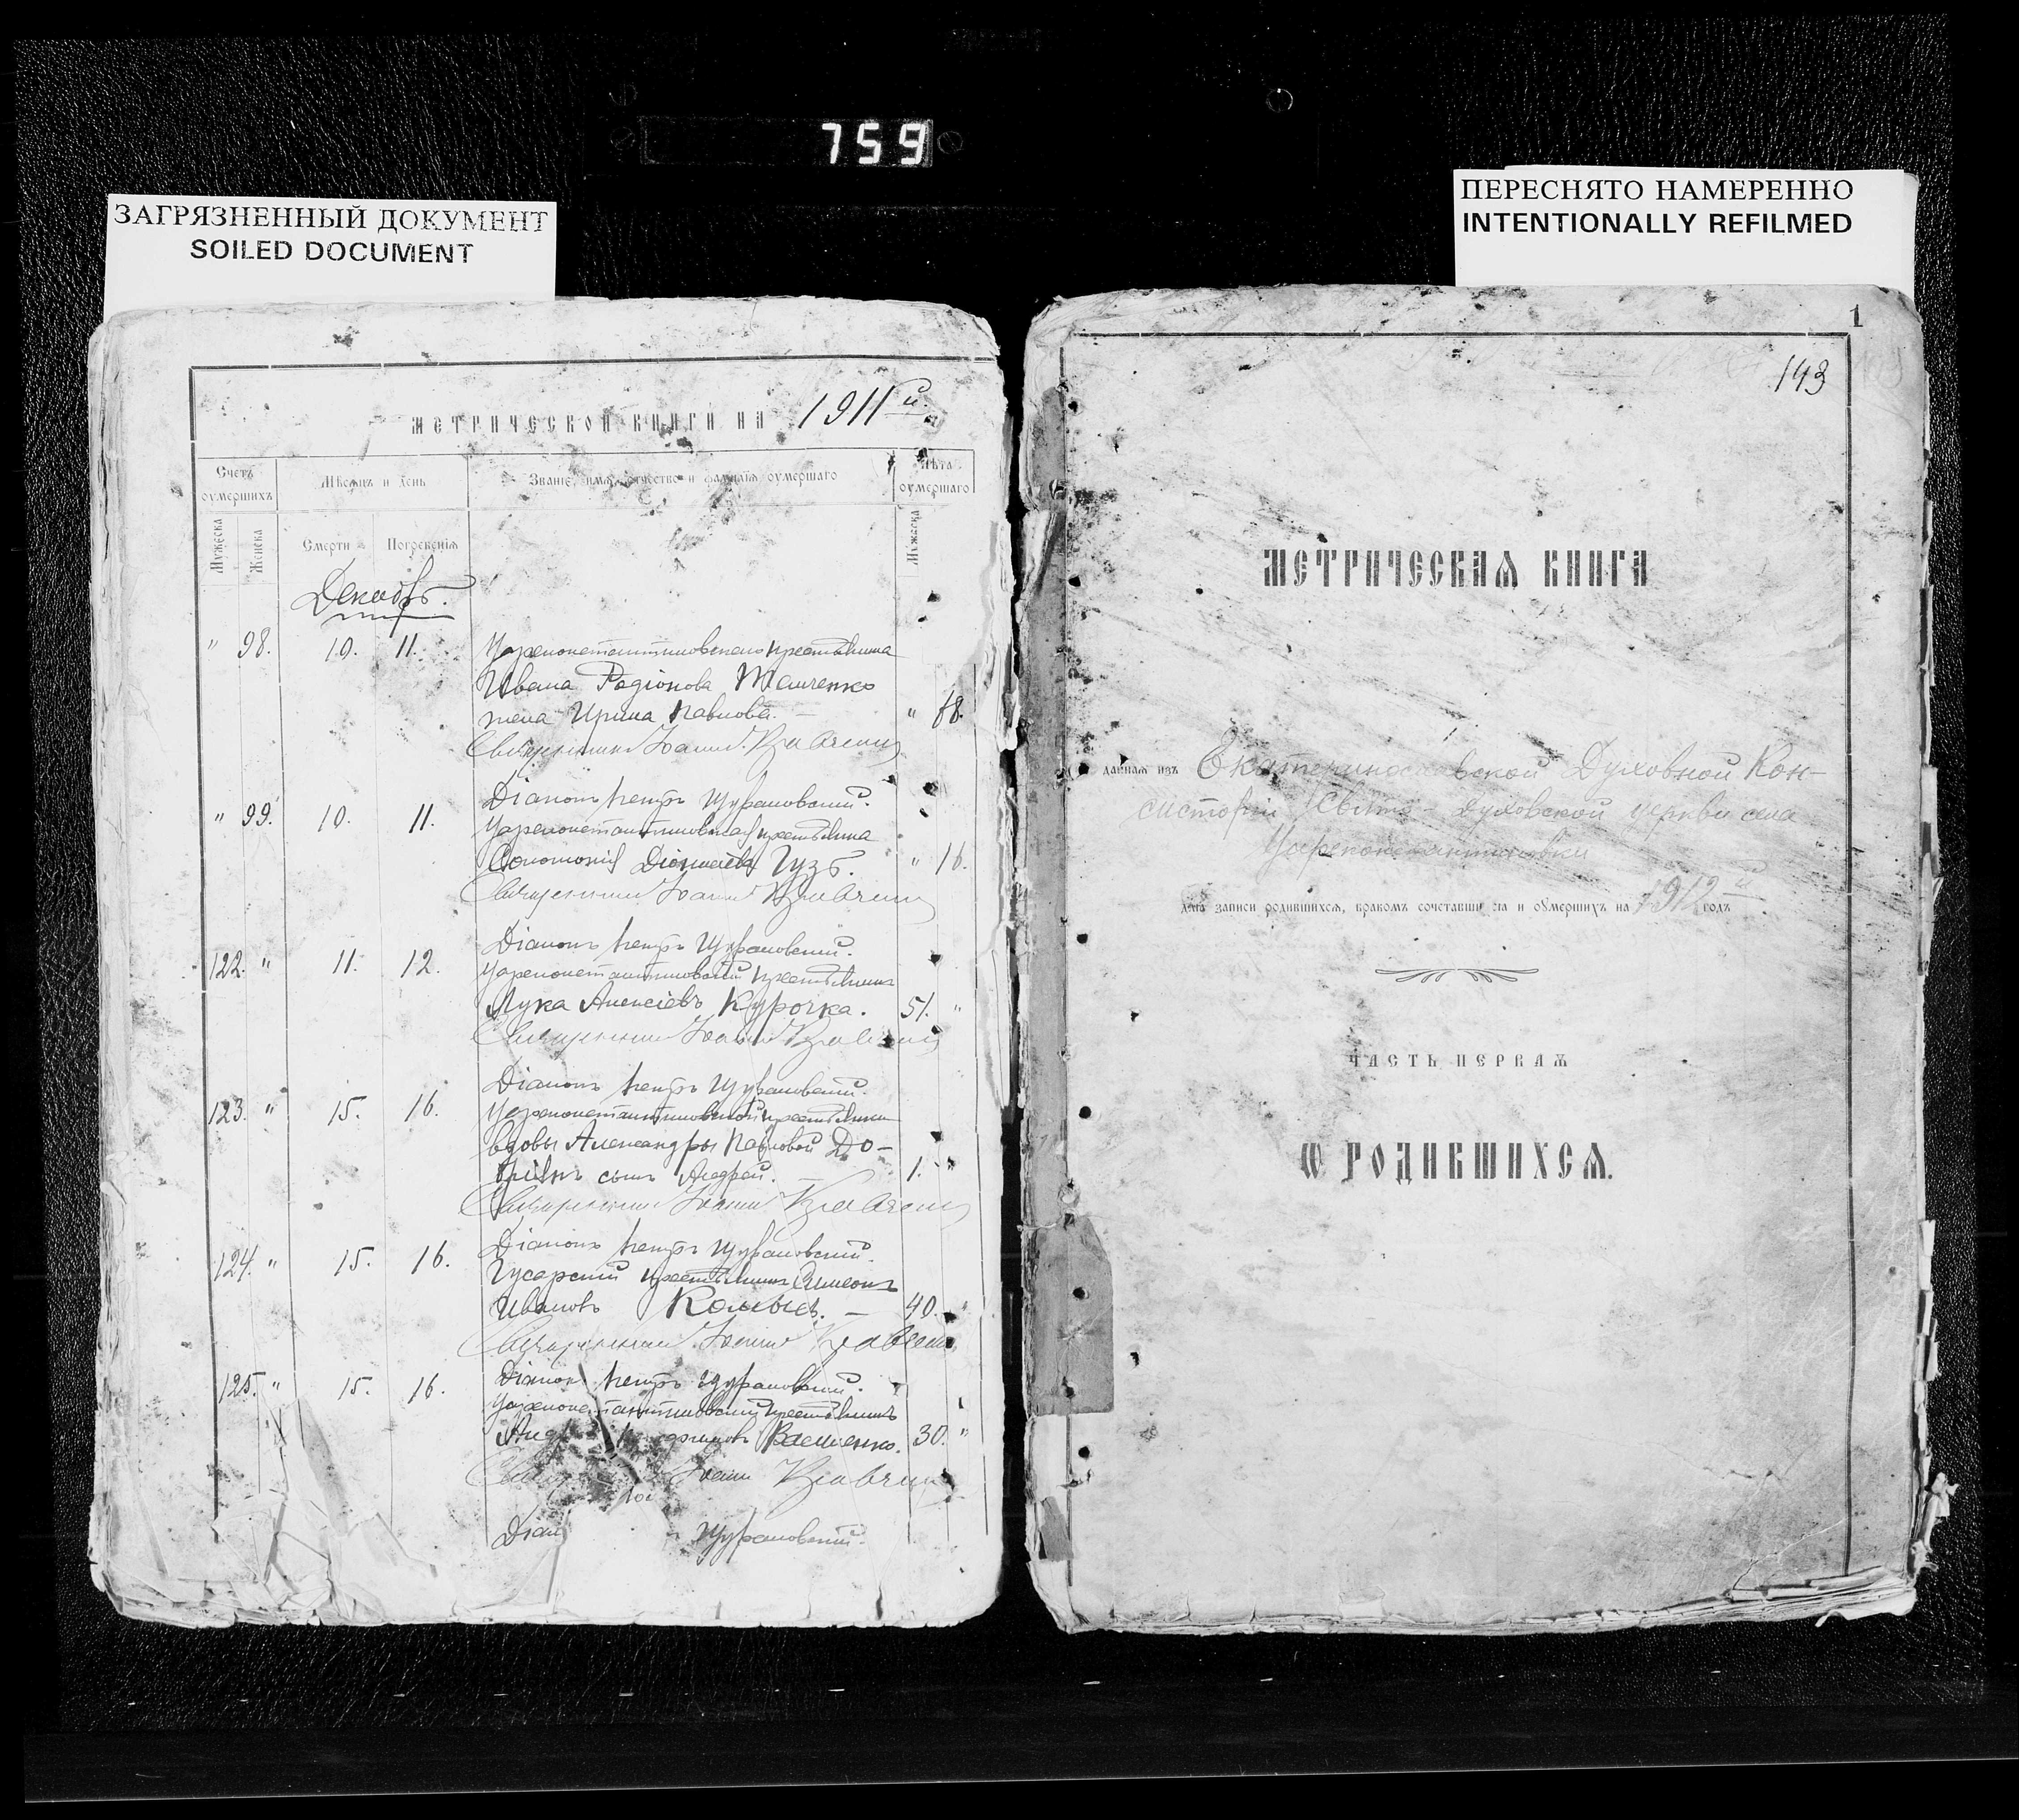 759
ЗАГРЯЗНЕННЫЙ ДОКУМЕНТ
SOILED DOCUMENT
ПЕРЕСНЯТО НАМЕРЕННО
INTENTIONALLY REFILMED
МЕТРИЧЕСКОЙ КНИГИ НА 1911й.
Счетъ оумершихъ
Мѣсяцъ и день
Званіе, имя, отчество и фамилія оумершаго
Лѣта оумершаго
Мужеска
Женска
Смерти
Погребенія
Мужеска
Декабрь.
" 98. 10. 11. Цареконстантиновскаго крестьянина
Ивана Родіонова
жена Ирина Павлова. — " 68.
Священникъ Іоаннъ Кравченко
Діаконъ Петръ Щурановскій.
" 99. 10. 11. Цареконстантиновская крестьянка
Соломонія Діонисіева Гузь. " 16.
Священникъ Іоаннъ Кравченко
Діаконъ Петръ Щурановскій.
122. " 11. 12. Цареконстантиновскій крестьянинъ
Лука Алексіевъ Курочка. 51. "
Священникъ Іоаннъ Кравченко
Діаконъ Петръ Щурановскій.
123. " 15. 16. Цареконстантиновской крестьянки
вдовы Александры Павловой
сынъ Андрей. — 1. "
Священникъ Іоаннъ Кравченко
Діаконъ Петръ Щурановскій.
124. " 15. 16. Гусарскій крестьянинъ Симеонъ
Ивановъ — 40. "
Священникъ Іоаннъ Кравченко
Діаконъ Петръ Щурановскій.
125. " 15. 16. Цареконстантиновскій крестьянинъ
Васченко. 30. "
Іоаннъ Кравченко
Щурановскій.
1
143
МЕТРИЧЕСКАЯ КНИГА
данная изъ Екатеринославской Духовной Кон-
систоріи Свято-Духовской церкви села
Цареконстантиновки
для записи родившихся, бракомъ сочетавшихся и оумершихъ на 1912й годъ
ЧАСТЬ ПЕРВАЯ
Ѡ РОДИВШИХСЯ.